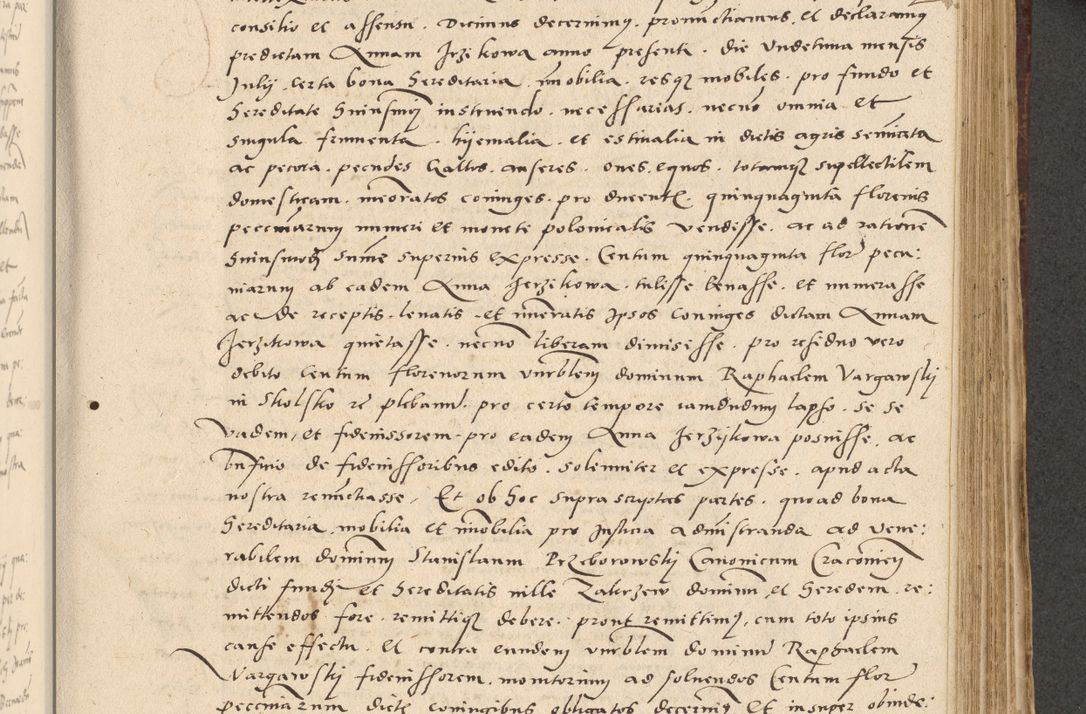 consilio et assensu . Dicimus decernimus . pronunctiamus, et declaramus
predictam Annam Jerzikowa anno presenti . die undecima mensis
Julij certa bona hereditaria immobilia . resque mobiles . pro fundo et
hereditate huiusmodi instruendo . necessarias . necnon omnia et
singula frumenta . hijemalia . et estivalia in dictis agris seminata
ac pecora . pecudes Gallos . anseres . oves, equos . totamque supellectilem
domesticam . memoratos coniuges . pro ducentis . quinquaginta florenis
pecuniarum numeri et monete polonicalis vendesse . ac ad rationem
huiusmodi summe superius expresse . Centum quinquaginta florenos pecu:
niarum ab eadem Anna Jerzikowa . tulisse levasse . et numerasse
ac de receptis . levatis . et numeratis ipsos Coniuges dictam Annam
Jerzikowa quietasse . necnon liberam dimisisse . pro residuo vero
debito Centum florenorum venerabilem dominum Raphaelem Vargawskij
in Skolsko re plebanum . pro certo tempore iamdudum lapso . se se
vadem, et fideiussorem . pro eadem Anna Jerzijkowa posuisse, ac
de fideiussoribus edito . solenniter et expresse . apud acta
nostra renunctiasse, Et ob hoc supra scriptas partes . quoad bona
hereditaria . mobilia et immobilia pro Justicia administranda ad vene:
rabilem dominum Stanislaum Przeborowskij Canonicum Cracoviensem
dicti fundi et hereditatis ville Zakrzew dominum, et heredem . re:
mittendos fore . remittique debere . prout remittimus, cum toto ipsius
cause effectu . Et contra eundem venerabilem dominum Raphaelem
Vargawskij fideiussorem . monitorium ad solvendos Centum florenos
pecuniarum dictis coniugibus obligatos decernimus et insuper obinde: